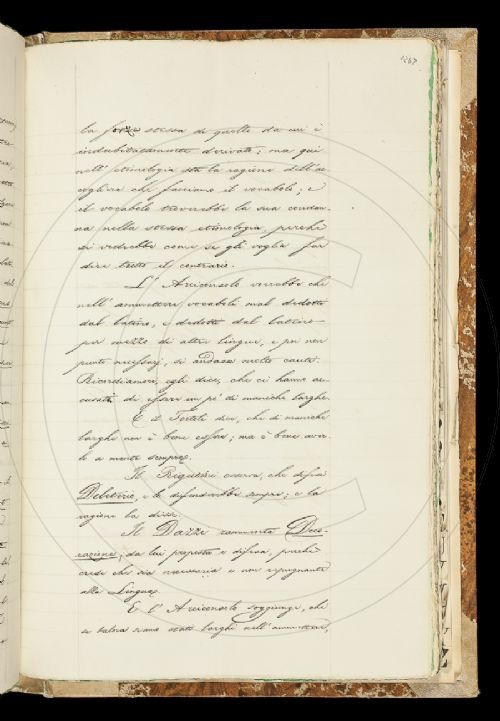 1267
la forza stessa di quello da cui è
indubitatamente derivato; ma qui
nell'etimologia sta la ragione dell'ac
coglienza che facciamo il vocabolo; e
il vocabolo troverebbe la sua condan
na nella stessa etimologia, perchè
si vedrebbe come se gli voglia far
dire tutto il contrario.
L'Arciconsolo vorrebbe che
nell'ammettere vocaboli mal dedotti
dal latino, e dedotti dal latino
per mezzo di altre lingue, e poi non
punto necessarj, si andasse molto cauti.
Ricordiamoci, egli dice, che ci hanno ac
cusati di essere un po' di maniche larghe.
E il Tortoli dice, che di maniche
larghe non è bene essere; ma è bene aver
lo a mente sempre.
Il Rigutini osserva, che difese
Deleterio, e lo difenderebbe sempre; e la
ragione la disse.
Il Dazzi rammenta Deco-
razione, da lui proposta e difesa, perchè
crede che sia necessaria e non repugnante
alla Lingua.
E l'Arciconsolo soggiunge, che
se talora siamo stati larghi nell'ammettere,